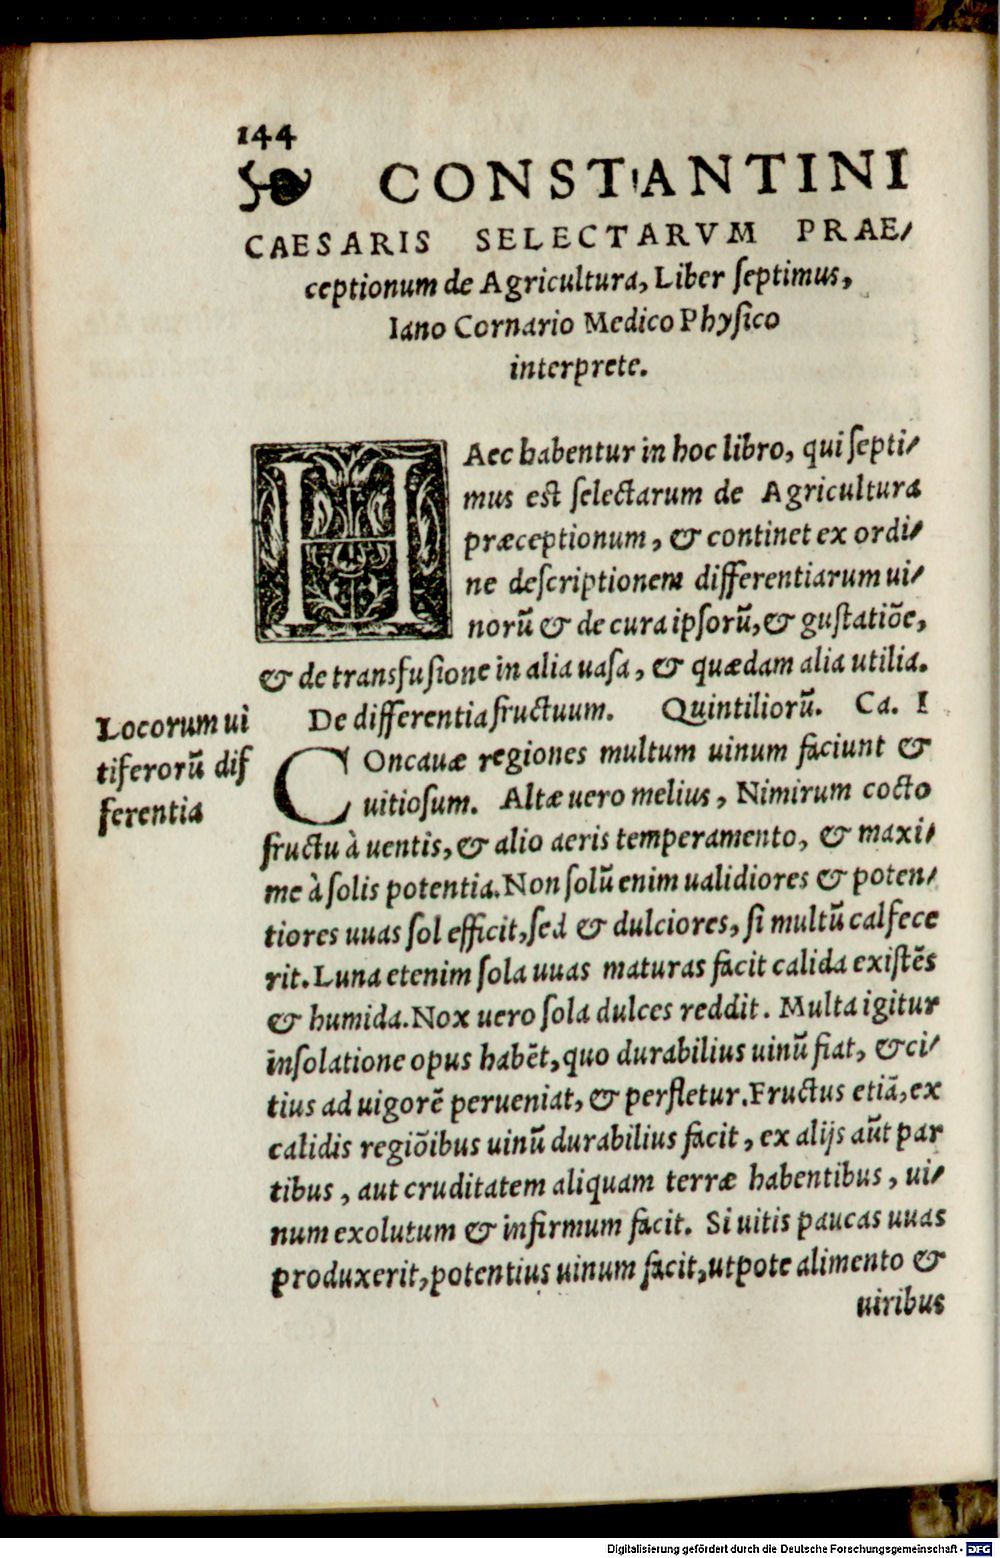 144
❧ CONSTANTINI
CAESARIS SELECTARVM PRAE/
ceptionum de Agricultura, Liber septimus,
Iano Cornario Medico Physico
interprete.
HAec habentur in hoc libro, qui septi/
mus est selectarum de Agricultura
præceptionum, & continet ex ordi/
ne descriptionem differentiarum ui/
norũ & de cura ipsorũ, & gustatiõe,
& de transfusione in alia uasa, & quædam alia utilia.
De differentia fructuum. Quintiliorũ. Ca. I
Locorum ui
tiferorũ dif
ferentia
COncauæ regiones multum uinum faciunt &
uitiosum. Altæ uero melius, Nimirum cocto
fructu à uentis, & alio aeris temperamento, & maxi/
me à solis potentia. Non solũ enim ualidiores & poten/
tiores uuas sol efficit, sed & dulciores, si multũ calfece
rit. Luna etenim sola uuas maturas facit calida existẽs
& humida. Nox uero sola dulces reddit. Multa igitur
insolatione opus habẽt, quo durabilius uinũ fiat, & ci/
tius ad uigorẽ perueniat, & perfletur. Fructus etiã, ex
calidis regiõibus uinũ durabilius facit, ex alijs aũt par
tibus, aut cruditatem aliquam terræ habentibus, ui/
num exolutum & infirmum facit. Si uitis paucas uuas
produxerit, potentius uinum facit, utpote alimento &
uiribus
Digitalisierung gefördert durch die Deutsche Forschungsgemeinschaft - DFG